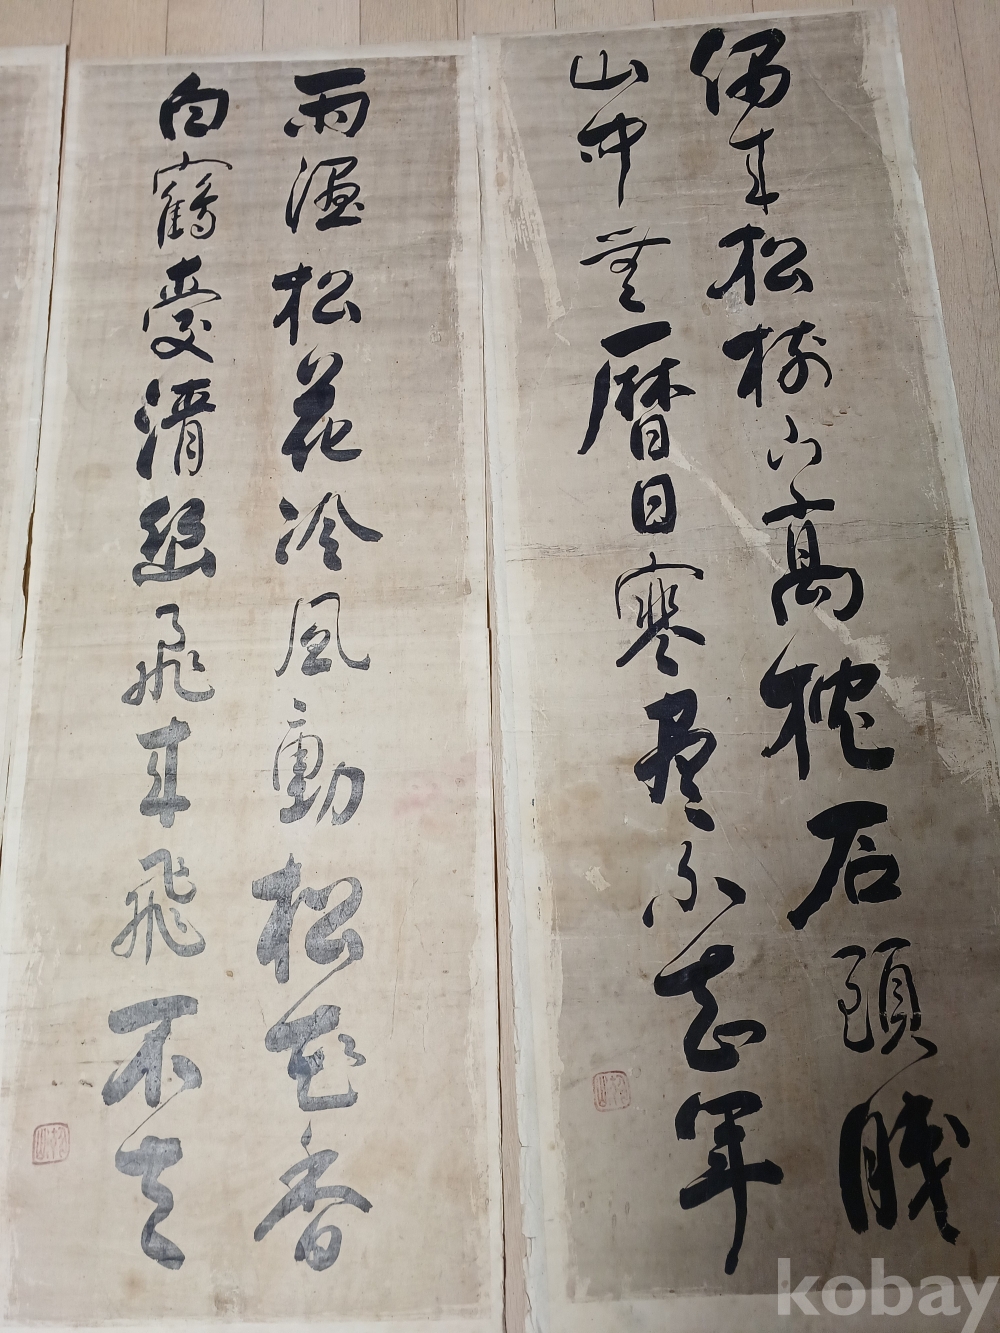 偶来松樹下高枕石頭眠
山中無曆日寒尽不知年
雨濕松花冷風動松花香
白鶴愛清幽飛来飛不去
kobay